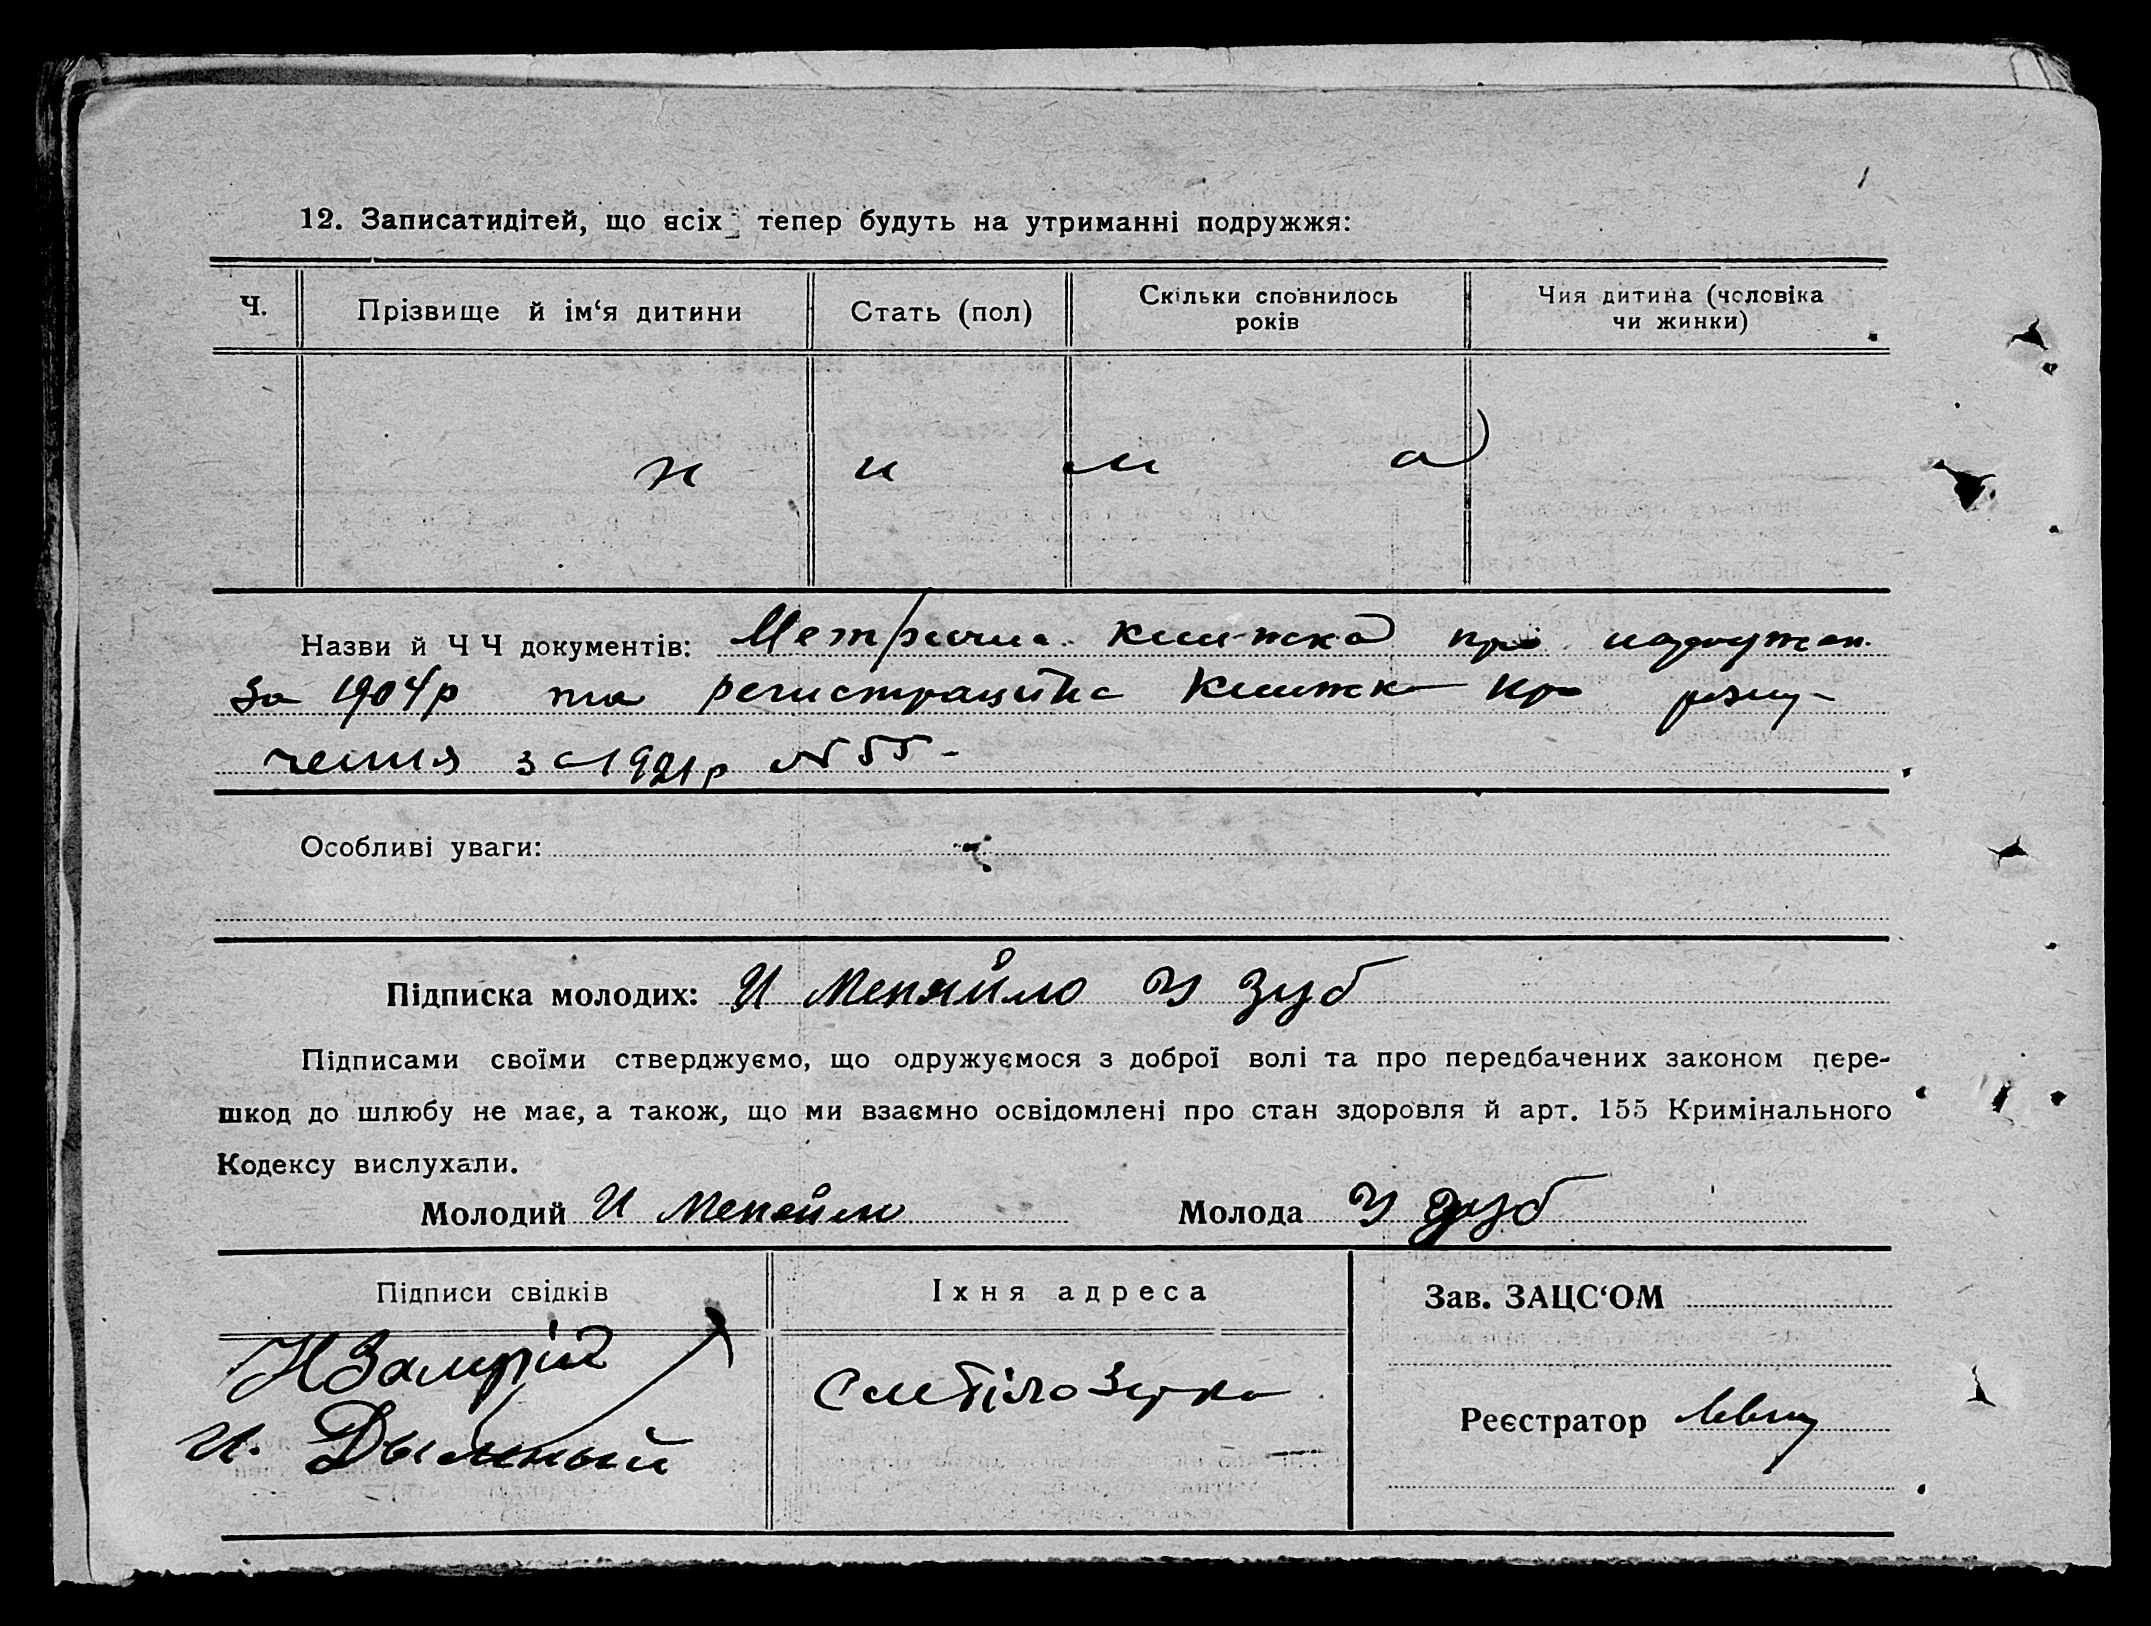 12. Записатидітей, що всіх тепер будуть на утриманні подружжя:
Ч.
Прізвище й ім‘я дитини
Стать (пол)
Скільки сповнилось
років
Чия дитина (чоловіка
чи жинки)
н и м а
Назви й ЧЧ документів: Метрична книжка про народжен.
За 1904р та регистраційна Книжка про розлу-
чення за 1921р №55-
Особливі уваги:
Підписка молодих: И Меняйло У Зуб
Підписами своїми стверджуємо, що одружуємося з доброї волі та про передбачених законом пере-
шкод до шлюбу не має, а також, що ми взаємно освідомлені про стан здоровля й арт. 155 Кримінального
Кодексу вислухали.
Молодий И Меняйло Молода У Зуб
Підписи свідків
Іхня адреса
Зав. ЗАЦС‘ОМ
И. Дымный
Реєстратор